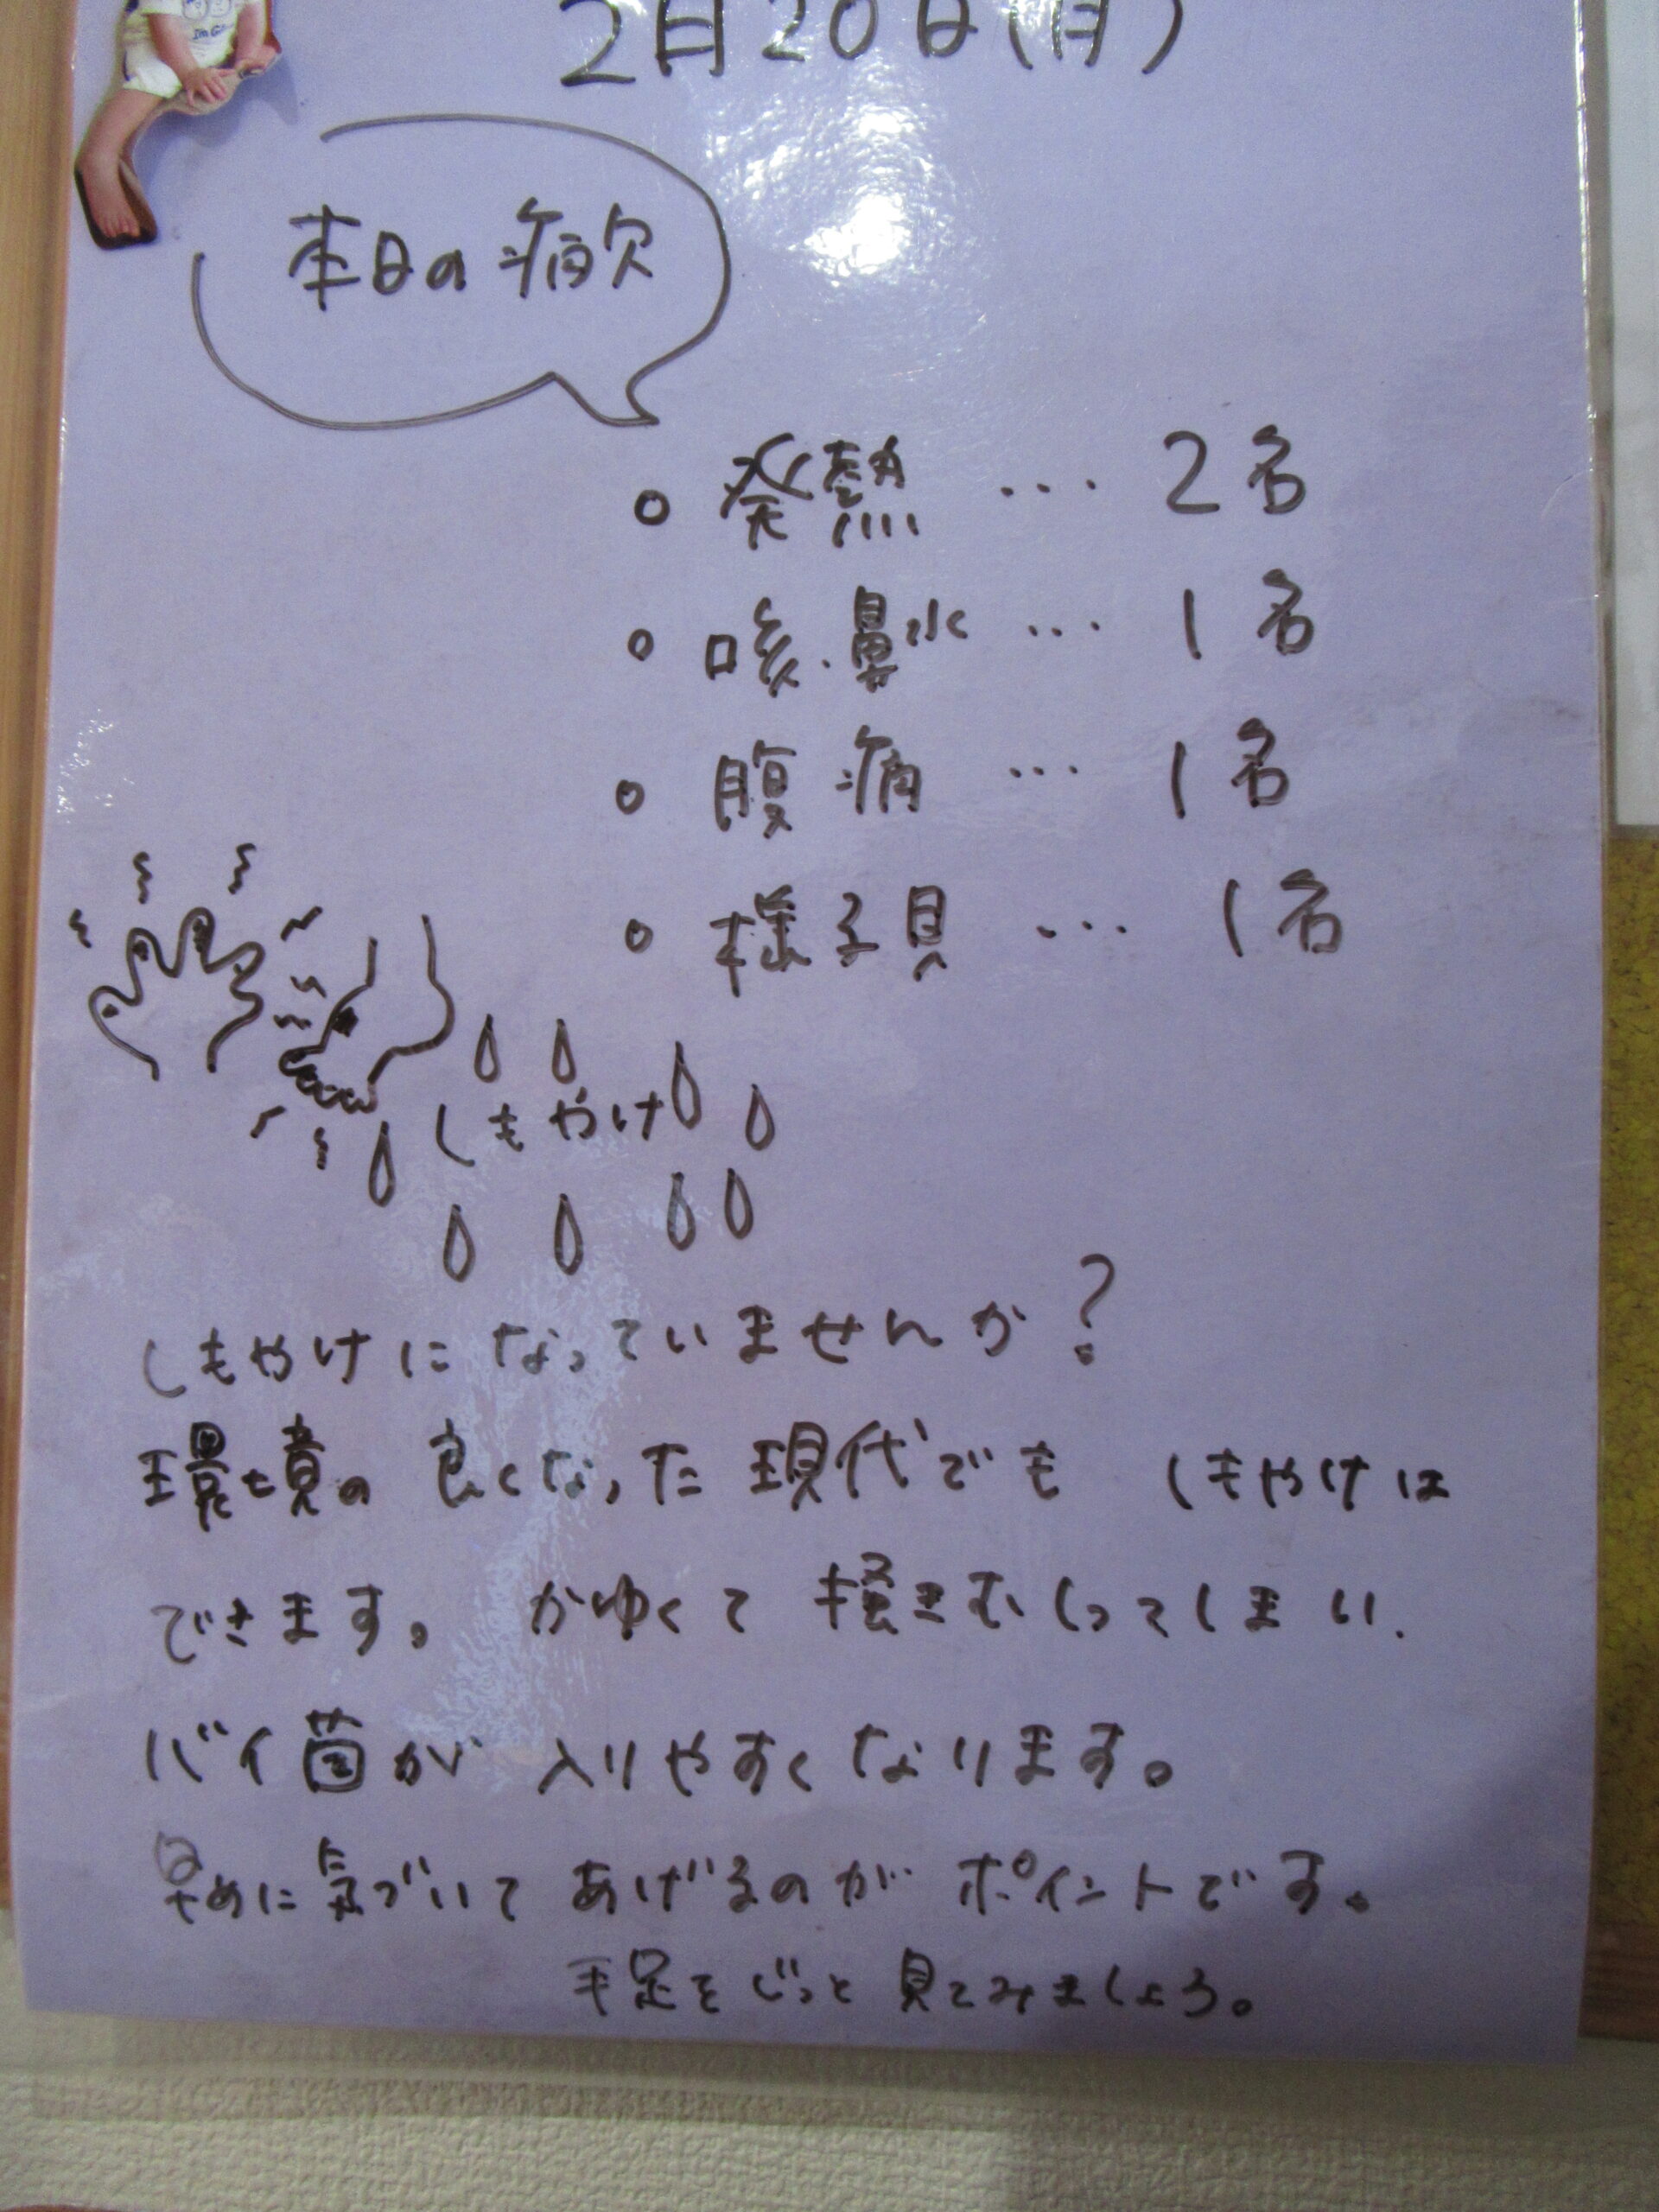 2月20日(月)
本日の病欠
○発熱 … 2名
○咳・鼻水 … 1名
○腹痛 … 1名
○様子見 … 1名
しもやけ
しもやけになっていませんか?
環境の良くなった現代でも しもやけは
できます。 かゆくて掻きむしってしまい、
バイ菌が入りやすくなります。
早めに気づいてあげるのがポイントです。
手足をじっと見てみましょう。